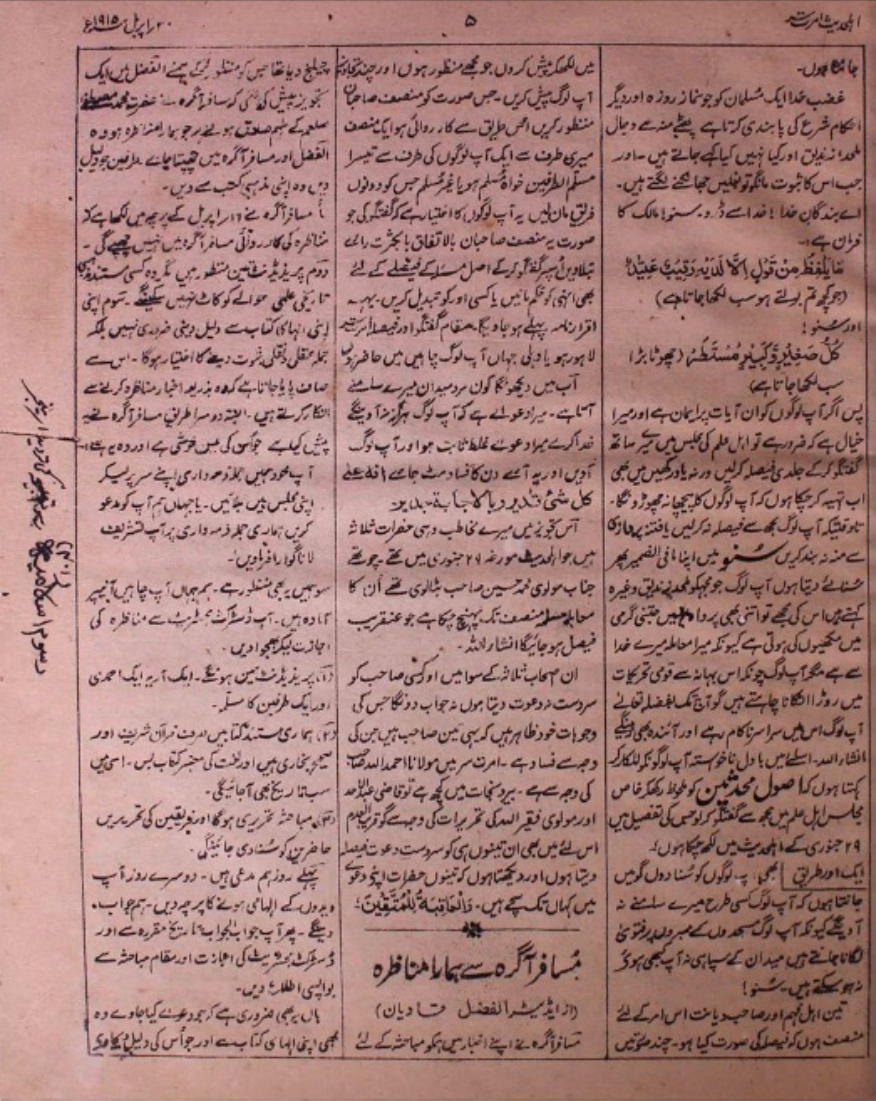 اہلحدیث امرتسر
۵
۳۰ اپریل ۱۹۱۵ء
جانتا ہوں۔
غضب خدا ایک مسلمان کو جو نماز روزہ اور دیگر
احکام شرع کی پابندی کرتا ہے پھٹے منہ سے دجال
ملحد زندیق اور کیا نہیں کیا کہے جاتے ہیں۔ اور
جب اس کا ثبوت مانگو تو بغلیں جھانکنے لگتے ہیں۔
اے بندگان خدا! خدا سے ڈرو۔ سنو! مالک کا
فرمان ہے:۔
مَا يَلْفِظُ مِنْ قَوْلٍ اِلَّا لَدَيْهِ رَقِيْبٌ عَتِيْدٌ
(جو کچھ تم بولتے ہو سب لکھا جاتا ہے)
اور سنو!
كُلُّ صَغِيْرٍ وَّكَبِيْرٍ مُّسْتَطَرٌ (چھوٹا بڑا
سب لکھا جاتا ہے)
پس اگر آپ لوگوں کو ان آیات پر ایمان ہے اور میرا
خیال ہے کہ ضرور ہے تو اہل علم کی مجلس میں میرے ساتھ
گفتگو کر کے جلدی فیصلہ کر لیں ورنہ یاد رکھیں میں بھی
اب تہیہ کر چکا ہوں کہ آپ لوگوں کا پیچھا نہ چھوڑونگا۔
تاوقتیکہ آپ لوگ مجھ سے فیصلہ نہ کر لیں یا فتنہ پردازی
سے منہ نہ بند کریں سنو میں اپنا مافی الضمیر پھر
سنائے دیتا ہوں آپ لوگ جو مجھکو ملحد زندیق وغیرہ
کہتے ہیں اس کی مجھے تو اتنی بھی پروا نہیں جتنی گرمی
میں مکھیوں کی ہوتی ہے کیونکہ میرا معاملہ میرے خدا
سے ہے مگر آپ لوگ چونکہ اس بہانہ سے قومی تحریکات
میں روڑا اٹکانا چاہتے ہیں گو آج تک بفضلہ تعالےٰ
آپ لوگ اس میں سراسر ناکام رہے اور آئندہ بھی رہینگے
انشاءاللہ۔ اسلئے میں بادل ناخواستہ آپ لوگونکو للکار کر
کہتا ہوں کہ اصول محدثین کو ملحوظ رکھکر خاص
مجلس اہل علم میں مجھ سے گفتگو کر لو جس کی تفصیل میں
۲۹ جنوری کے اہلحدیث میں لکھ چکا ہوں؛
ایک اور طریق بھی آپ لوگوں کو سنا دوں گو میں
جانتا ہوں کہ آپ لوگ کسی طرح میرے سامنے نہ
آوینگے کیونکہ آپ لوگ مسجدوں کے ممبروں پر فتویٰ
لگانا جانتے ہیں میدان کے سپاہی نہ آپ کبھی ہوئے
نہ ہو سکتے ہیں۔ سنو!
تین اہل فہم اور صاحب دیانت اس امر کے لئے
منصف ہوں کہ فیصلہ کی صورت کیا ہو۔ چند صورتیں
میں لکھکر پیش کروں جو مجھے منظور ہوں اور چند تجاویز
آپ لوگ پیش کریں۔ جس صورت کو منصف صاحبان
منظور کریں اس طریق سے کارروائی ہو ایک منصف
میری طرف سے ایک آپ لوگوں کی طرف سے تیسرا
مسلم الطرفین خواہ مسلم ہو یا غیر مسلم جس کو دونوں
فریق مان لیں یہ آپ لوگوں کا اختیار ہے کہ گفتگو کی جو
صورت یہ منصف صاحبان بالاتفاق یا بکثرت رائے
بتلاویں اسپر گفتگو کر کے اصل مسئلہ کے فیصلے کے لئے
بھی انہی کو حکم مانیں یا کسی اور کو تبدیل کریں۔ یہ
اقرارنامہ پہلے ہو جاویگا۔ مقام گفتگو اور فیصلہ امرتسر
لاہور ہو یا دہلی جہاں آپ لوگ چاہیں میں حاضر ہوں
اب میں دیکھونگا کون مرد میدان میرے سامنے
آتا ہے۔ میرا دعوےٰ ہے کہ آپ لوگ ہرگز نہ آوینگے
خدا کرے میرا دعوےٰ غلط ثابت ہو اور آپ لوگ
آویں اور یہ آئے دن کا فساد مٹ جائے انه على
كل شئ قدير وبالاجابة جدير
اس تجویز میں میرے مخاطب وہی حضرات ثلاثہ
ہیں جو اہلحدیث مورخہ ۲۹ جنوری میں تھے۔ چوتھے
جناب مولوی محمد حسین صاحب بٹالوی تھے اُن کا
معاملہ مسلمہ منصف تک پہنچ چکا ہے جو عنقریب
فیصل ہو جائیگا انشاءاللہ۔
ان اصحاب ثلاثہ کے سوا میں اور کسی صاحب کو
سردست نہ دعوت دیتا ہوں نہ جواب دونگا جس کی
وجوہات خود ظاہر ہیں کہ یہی تین صاحب ہیں جن کی
وجہ سے فساد ہے۔ امرتسر میں مولانا احمد اللہ صاحب
کی وجہ سے ہے۔ بیرونجات میں کچھ ہے تو قاضی عبدالاحد
اور مولوی فقیر اللہ کی تحریرات کی وجہ سے گو
اس لئے میں بھی ان تینوں ہی کو سردست دعوت فیصلہ
دیتا ہوں اور دیکھتا ہوں کہ تینوں حضرات اپنی دعوےٰ
میں کہاں تک سچے ہیں۔ وَالْعَاقِبَةُ لِلْمُتَّقِيْنَ؛
مسافر آگرہ سے ہمارا مناظرہ
(از ایڈیٹر الفضل قادیان)
مسافر آگرہ نے اپنے اخبار میں ہمکو مباحثہ کے لئے
چیلنج دیا تھا جس کو منظور کر کے ہمنے الفضل میں ایک
تجویز پیش کی تھی کہ مسافر آگرہ سے حضرت محمد مصطفےٰ
صلعم کے ملہم صادق ہونے پر جو ہمارا مناظرہ ہو وہ
الفضل اور مسافر آگرہ میں چھپتا جائے طرفین جو دلیل
دیں وہ اپنی مذہبی کتب سے دیں۔
مسافر آگرہ نے ۱۶ اپریل کے پرچہ میں لکھا ہے کہ
مناظرہ کی کارروائی مسافر آگرہ میں نہیں چھپے گی۔
دوم پریزیڈنٹ تین منظور ہیں مگر وہ کسی مستند
تاریخی علمی حوالے کو کاٹ نہیں سکینگے۔ سوم اپنی
اپنی الہامی کتاب سے دلیل دینی ضروری نہیں بلکہ
جملہ عقلی و نقلی ثبوت دینے کا اختیار ہوگا۔ اس سے
صاف پایا جاتا ہے کہ وہ بذریعہ اخبار مناظرہ کرنے سے
انکار کرتے ہیں۔ البتہ دوسرا طریق مسافر آگرہ نے یہ
پیش کیا ہے جو اُس کی عین خوشی ہے اور وہ یہ ہے:۔
آپ خود ہمیں جملہ ذمہ داری اپنے سر پر لیکر
اپنی مجلس میں بلائیں۔ یا جہاں ہم آپ کو مدعو
کریں ہماری جملہ ذمہ واری پر آپ تشریف
لانا گوارا فرماویں۔
سو ہمیں یہ بھی منظور ہے۔ ہم جہاں آپ چاہیں آنیپر
آمادہ ہیں۔ آپ ڈسٹرکٹ مجسٹریٹ سے مناظرہ کی
اجازت لیکر بھجوا دیں۔
(۱) پریزیڈنٹ تین ہونگے۔ ایک آریہ ایک احمدی
اور ایک طرفین کا مسلمہ۔
(۲) ہماری مستند کتابیں صرف قرآن شریف اور
صحیح بخاری ہیں اور لغت کی معتبر کتاب بس۔ اسی میں
سب تاریخ بھی آ جائیگی۔
(۳) مباحثہ تحریری ہوگا اور فریقین کی تحریریں
حاضرین کو سنا دی جائینگی۔
پہلے روز ہم مدعی ہیں۔ دوسرے روز آپ
ویدوں کے الہامی ہونے کا پرچہ دیں۔ ہم جواب
دینگے۔ پھر آپ جواب الجواب تاریخ مقررہ سے اور
ڈسٹرکٹ مجسٹریٹ کی اجازت اور مقام مباحثہ سے
بواپسی اطلاع دیں۔
ہاں یہ بھی ضروری ہے کہ جو دعوےٰ کیا جاوے وہ
بھی اپنی الہامی کتاب سے اور جو اُس کی دلیل دیجاوے